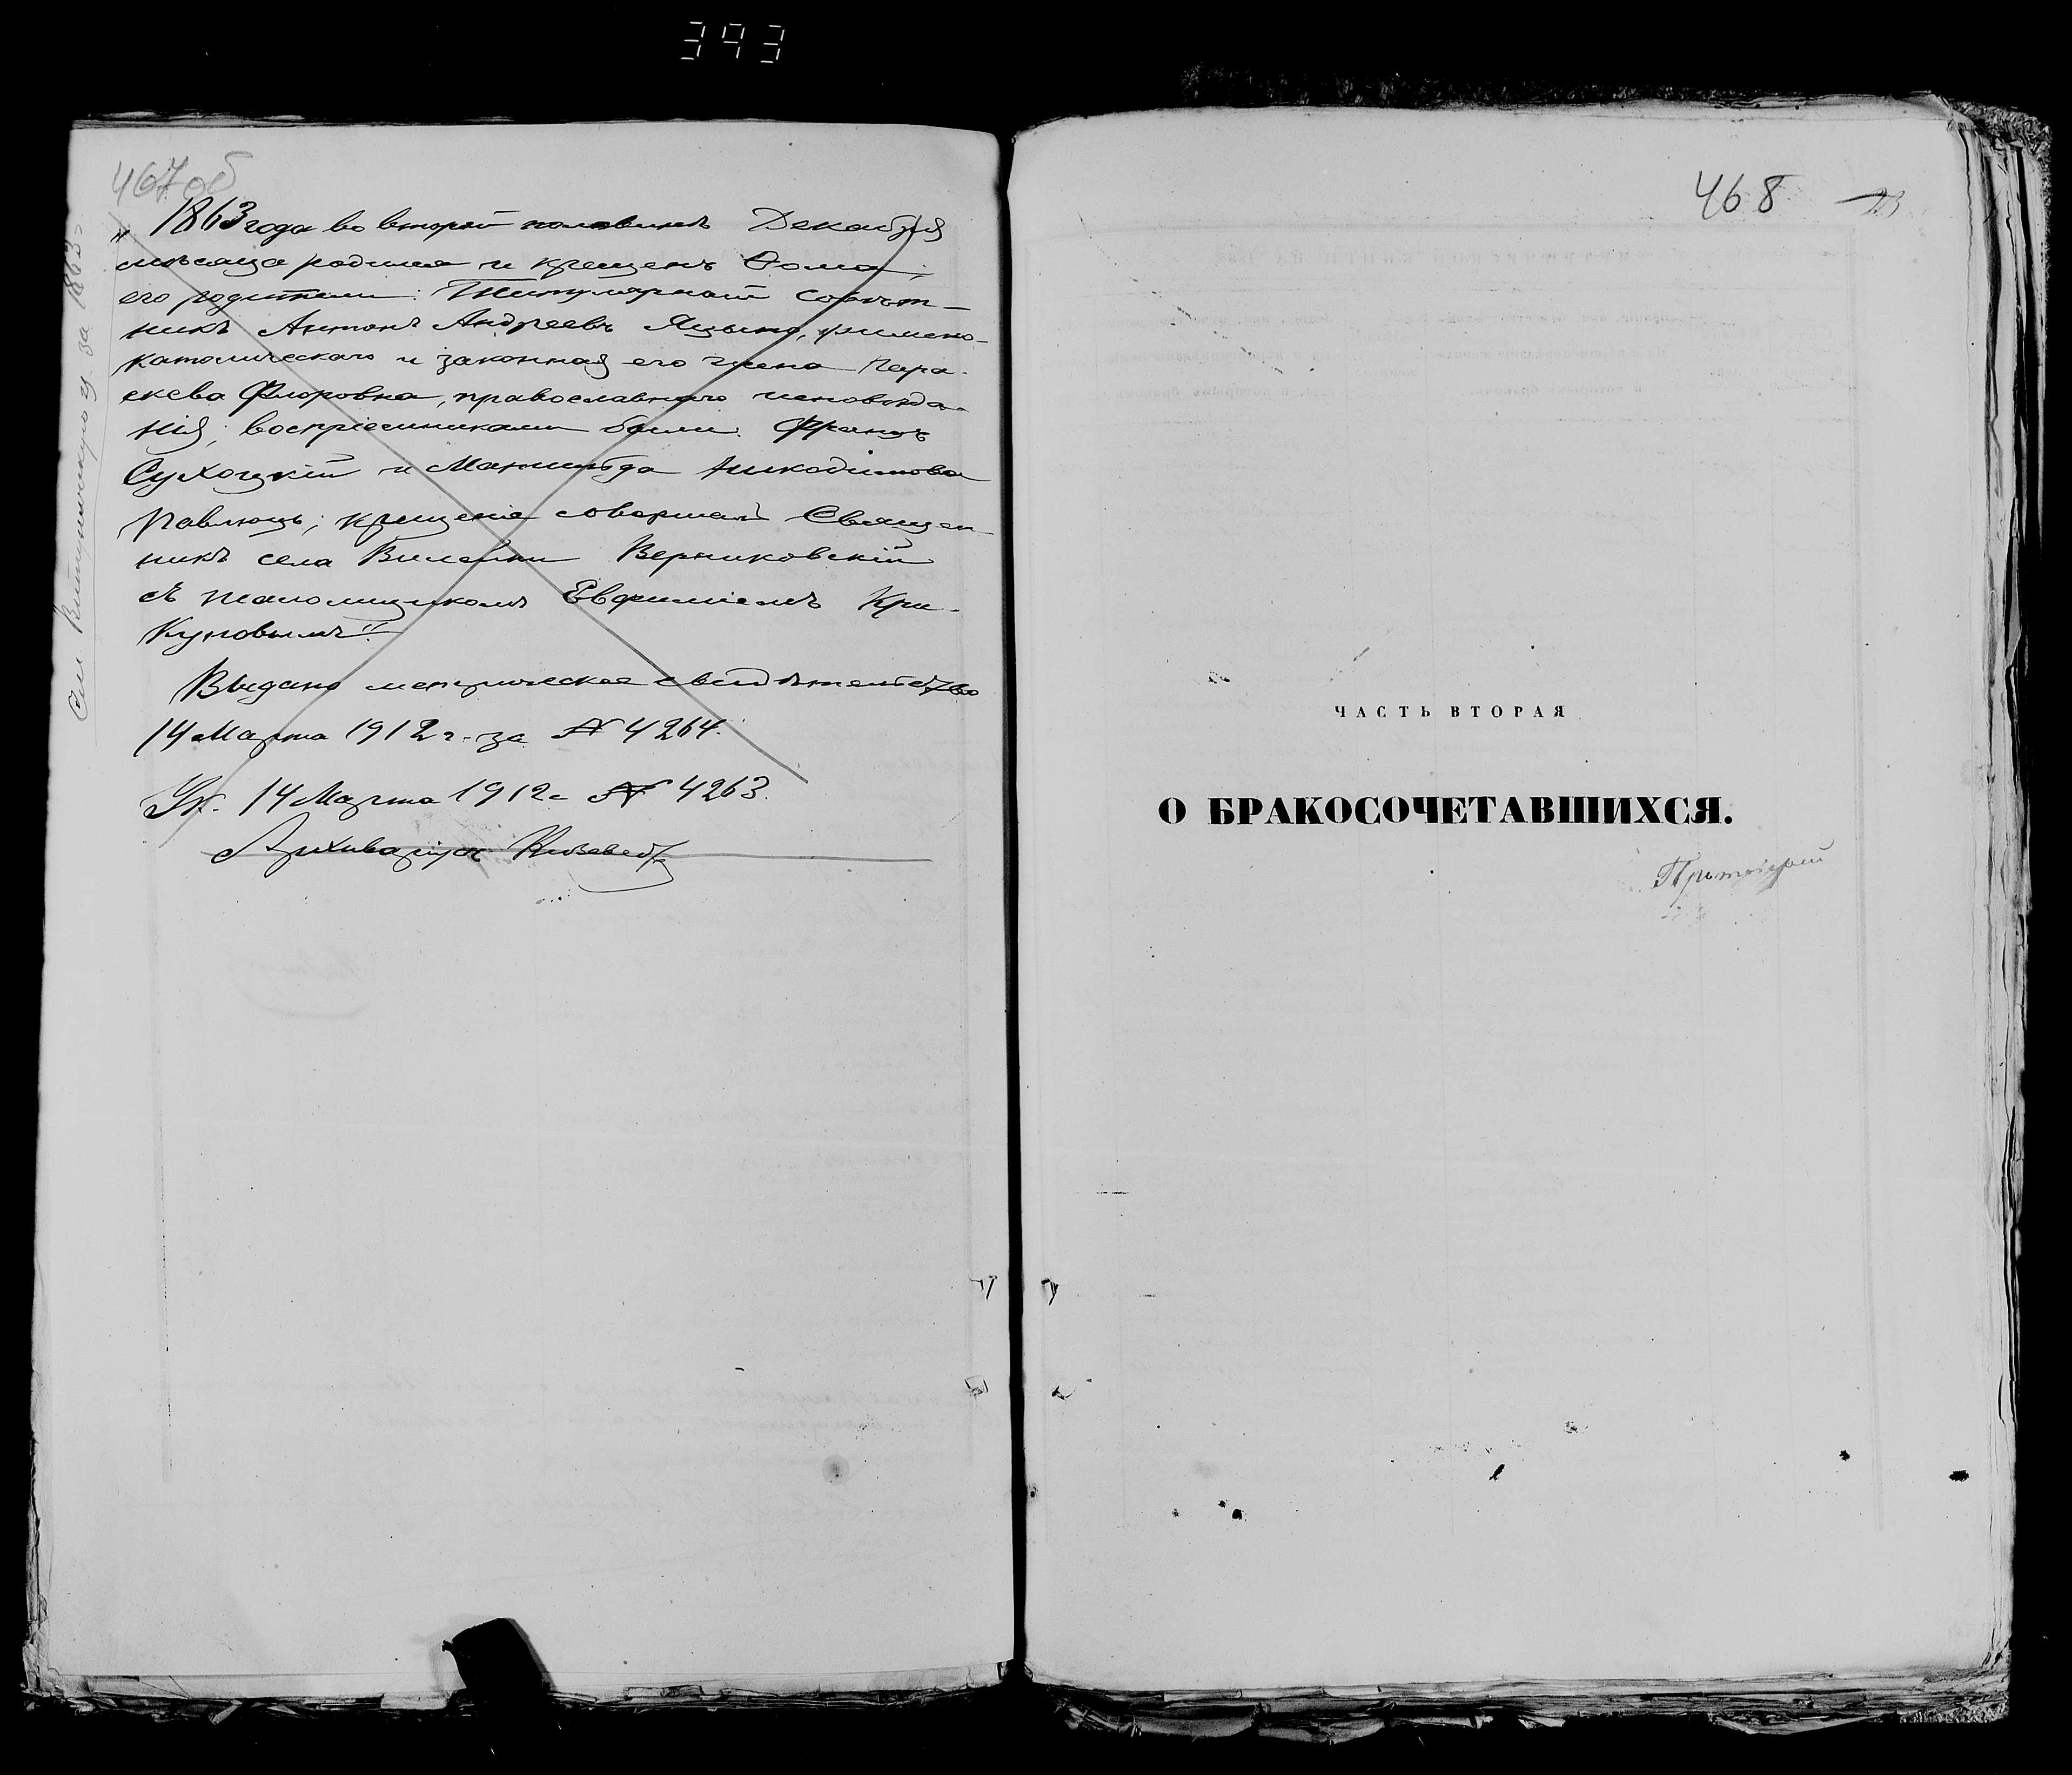 393
467 об
„1863 года во второй половинѣ Декабря
мѣсяца родился и крещенъ Ѳома;
его родители: Титулярный Совѣт-
никъ Антонъ Андреевъ Яцына, римско-
католическаго и законная его жена Пара-
скева Флоровна, православнаго исповѣда-
нія; воспріемниками были: Францъ
Сухоцкій и Матильда Никодимова
Павлюць; крещеніе совершалъ Священ-
никъ села Вилейки Верниковскій
съ пономщикомъ Евфиміемъ Кри-
куновымъ".
Выдано метрическое свидѣтельство
14 Марта 1912 г. за № 4264.
Ук. 14 Марта 1912 г. № 4263.
Архиваріусъ
См. за 1863 г.
468
ЧАСТЬ ВТОРАЯ
О БРАКОСОЧЕТАВШИХСЯ.